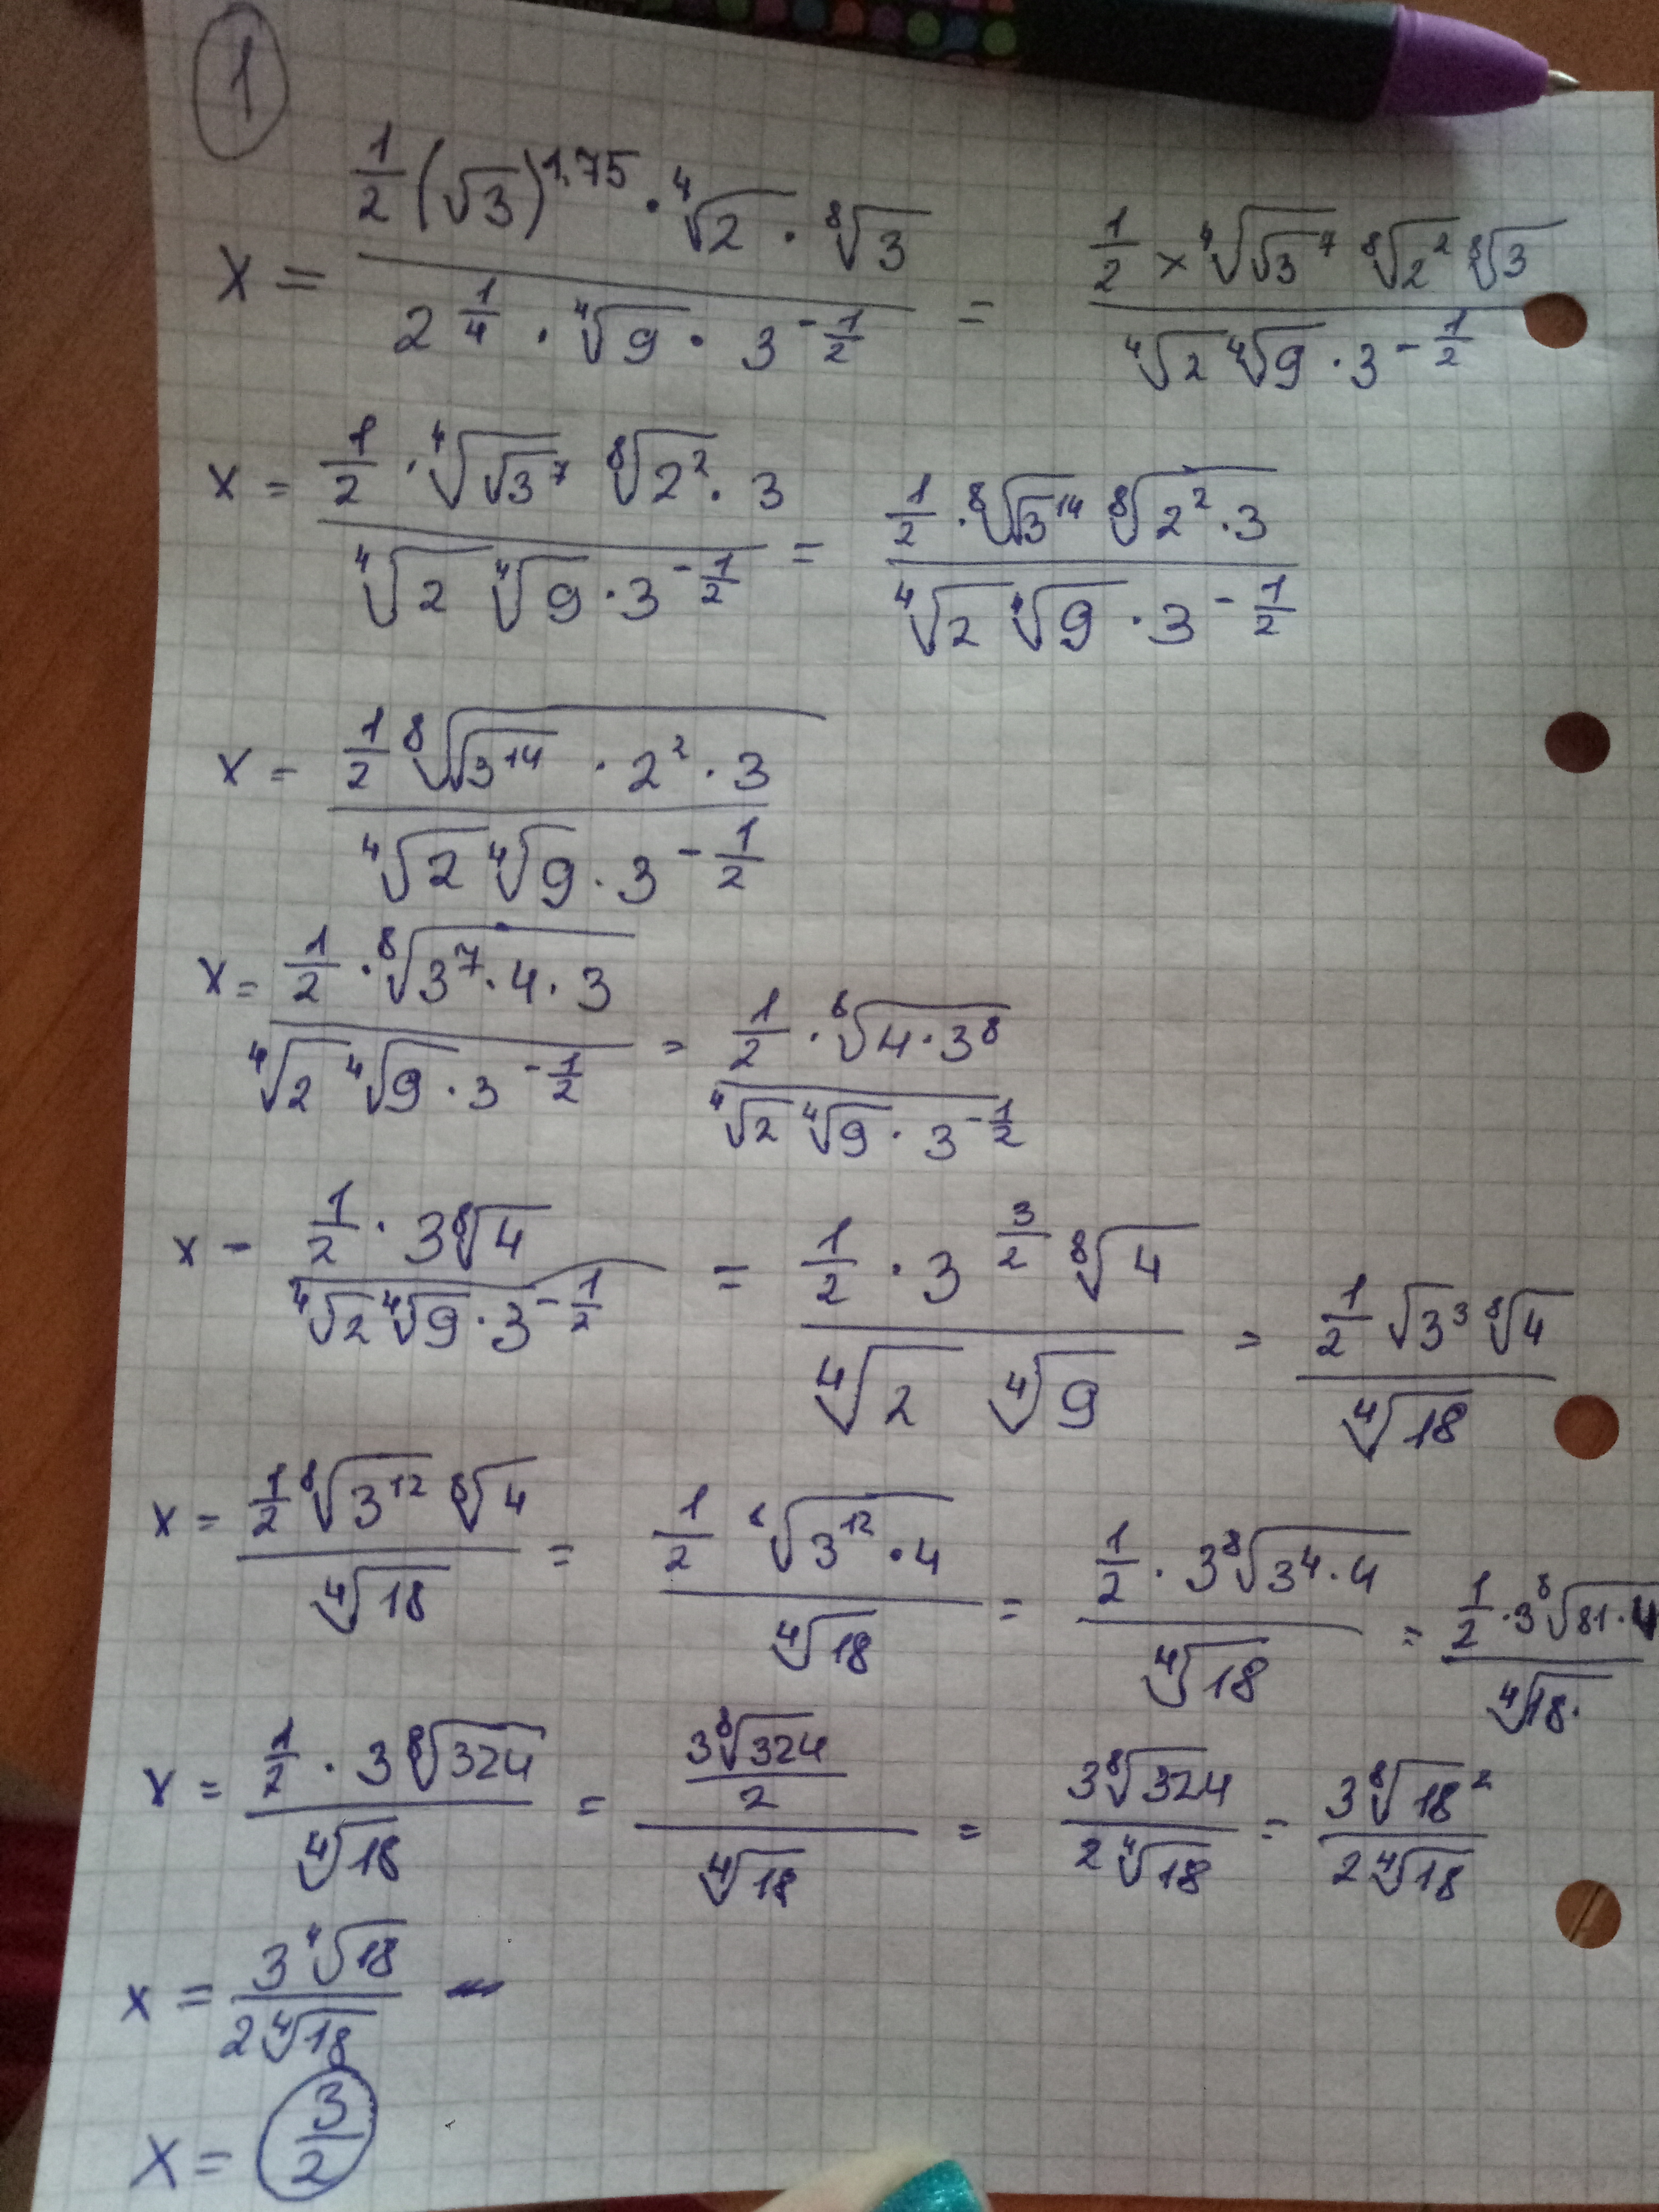 1
x = \frac{\frac{1}{2}(\sqrt{3})^{1,75} \cdot \sqrt[4]{2} \cdot \sqrt[8]{3}}{2^{\frac{1}{4}} \cdot \sqrt[4]{9} \cdot 3^{-\frac{1}{2}}} = \frac{\frac{1}{2} \times \sqrt[4]{\sqrt{3}^7} \sqrt[8]{2^2} \sqrt[8]{3}}{\sqrt[4]{2} \sqrt[4]{9} \cdot 3^{-\frac{1}{2}}}
x = \frac{\frac{1}{2} \cdot \sqrt[4]{\sqrt{3}^7} \sqrt[8]{2^2 \cdot 3}}{\sqrt[4]{2} \sqrt[4]{9} \cdot 3^{-\frac{1}{2}}} = \frac{\frac{1}{2} \cdot \sqrt[8]{\sqrt{3}^{14}} \sqrt[8]{2^2 \cdot 3}}{\sqrt[4]{2} \sqrt[4]{9} \cdot 3^{-\frac{1}{2}}}
x = \frac{\frac{1}{2} \sqrt[8]{\sqrt{3^{14}} \cdot 2^2 \cdot 3}}{\sqrt[4]{2} \sqrt[4]{9} \cdot 3^{-\frac{1}{2}}}
x = \frac{\frac{1}{2} \cdot \sqrt[8]{3^7 \cdot 4 \cdot 3}}{\sqrt[4]{2} \sqrt[4]{9} \cdot 3^{-\frac{1}{2}}} = \frac{\frac{1}{2} \cdot \sqrt[8]{4 \cdot 3^8}}{\sqrt[4]{2} \sqrt[4]{9} \cdot 3^{-\frac{1}{2}}}
x - \frac{\frac{1}{2} \cdot 3\sqrt[8]{4}}{\sqrt[4]{2} \sqrt[4]{9} \cdot 3^{-\frac{1}{2}}} = \frac{\frac{1}{2} \cdot 3^{\frac{3}{2}} \sqrt[8]{4}}{\sqrt[4]{2} \sqrt[4]{9}} = \frac{\frac{1}{2} \sqrt{3^3} \sqrt[8]{4}}{\sqrt[4]{18}}
x = \frac{\frac{1}{2} \sqrt[8]{3^{12}} \sqrt[8]{4}}{\sqrt[4]{18}} = \frac{\frac{1}{2} \sqrt[8]{3^{12} \cdot 4}}{\sqrt[4]{18}} = \frac{\frac{1}{2} \cdot 3\sqrt[8]{3^4 \cdot 4}}{\sqrt[4]{18}} = \frac{\frac{1}{2} \cdot 3\sqrt[8]{81 \cdot 4}}{\sqrt[4]{18}}
x = \frac{\frac{1}{2} \cdot 3\sqrt[8]{324}}{\sqrt[4]{18}} = \frac{\frac{3\sqrt[8]{324}}{2}}{\sqrt[4]{18}} = \frac{3\sqrt[8]{324}}{2\sqrt[4]{18}} = \frac{3\sqrt[8]{18^2}}{2\sqrt[4]{18}}
x = \frac{3\sqrt[4]{18}}{2\sqrt[4]{18}}
x = \frac{3}{2}